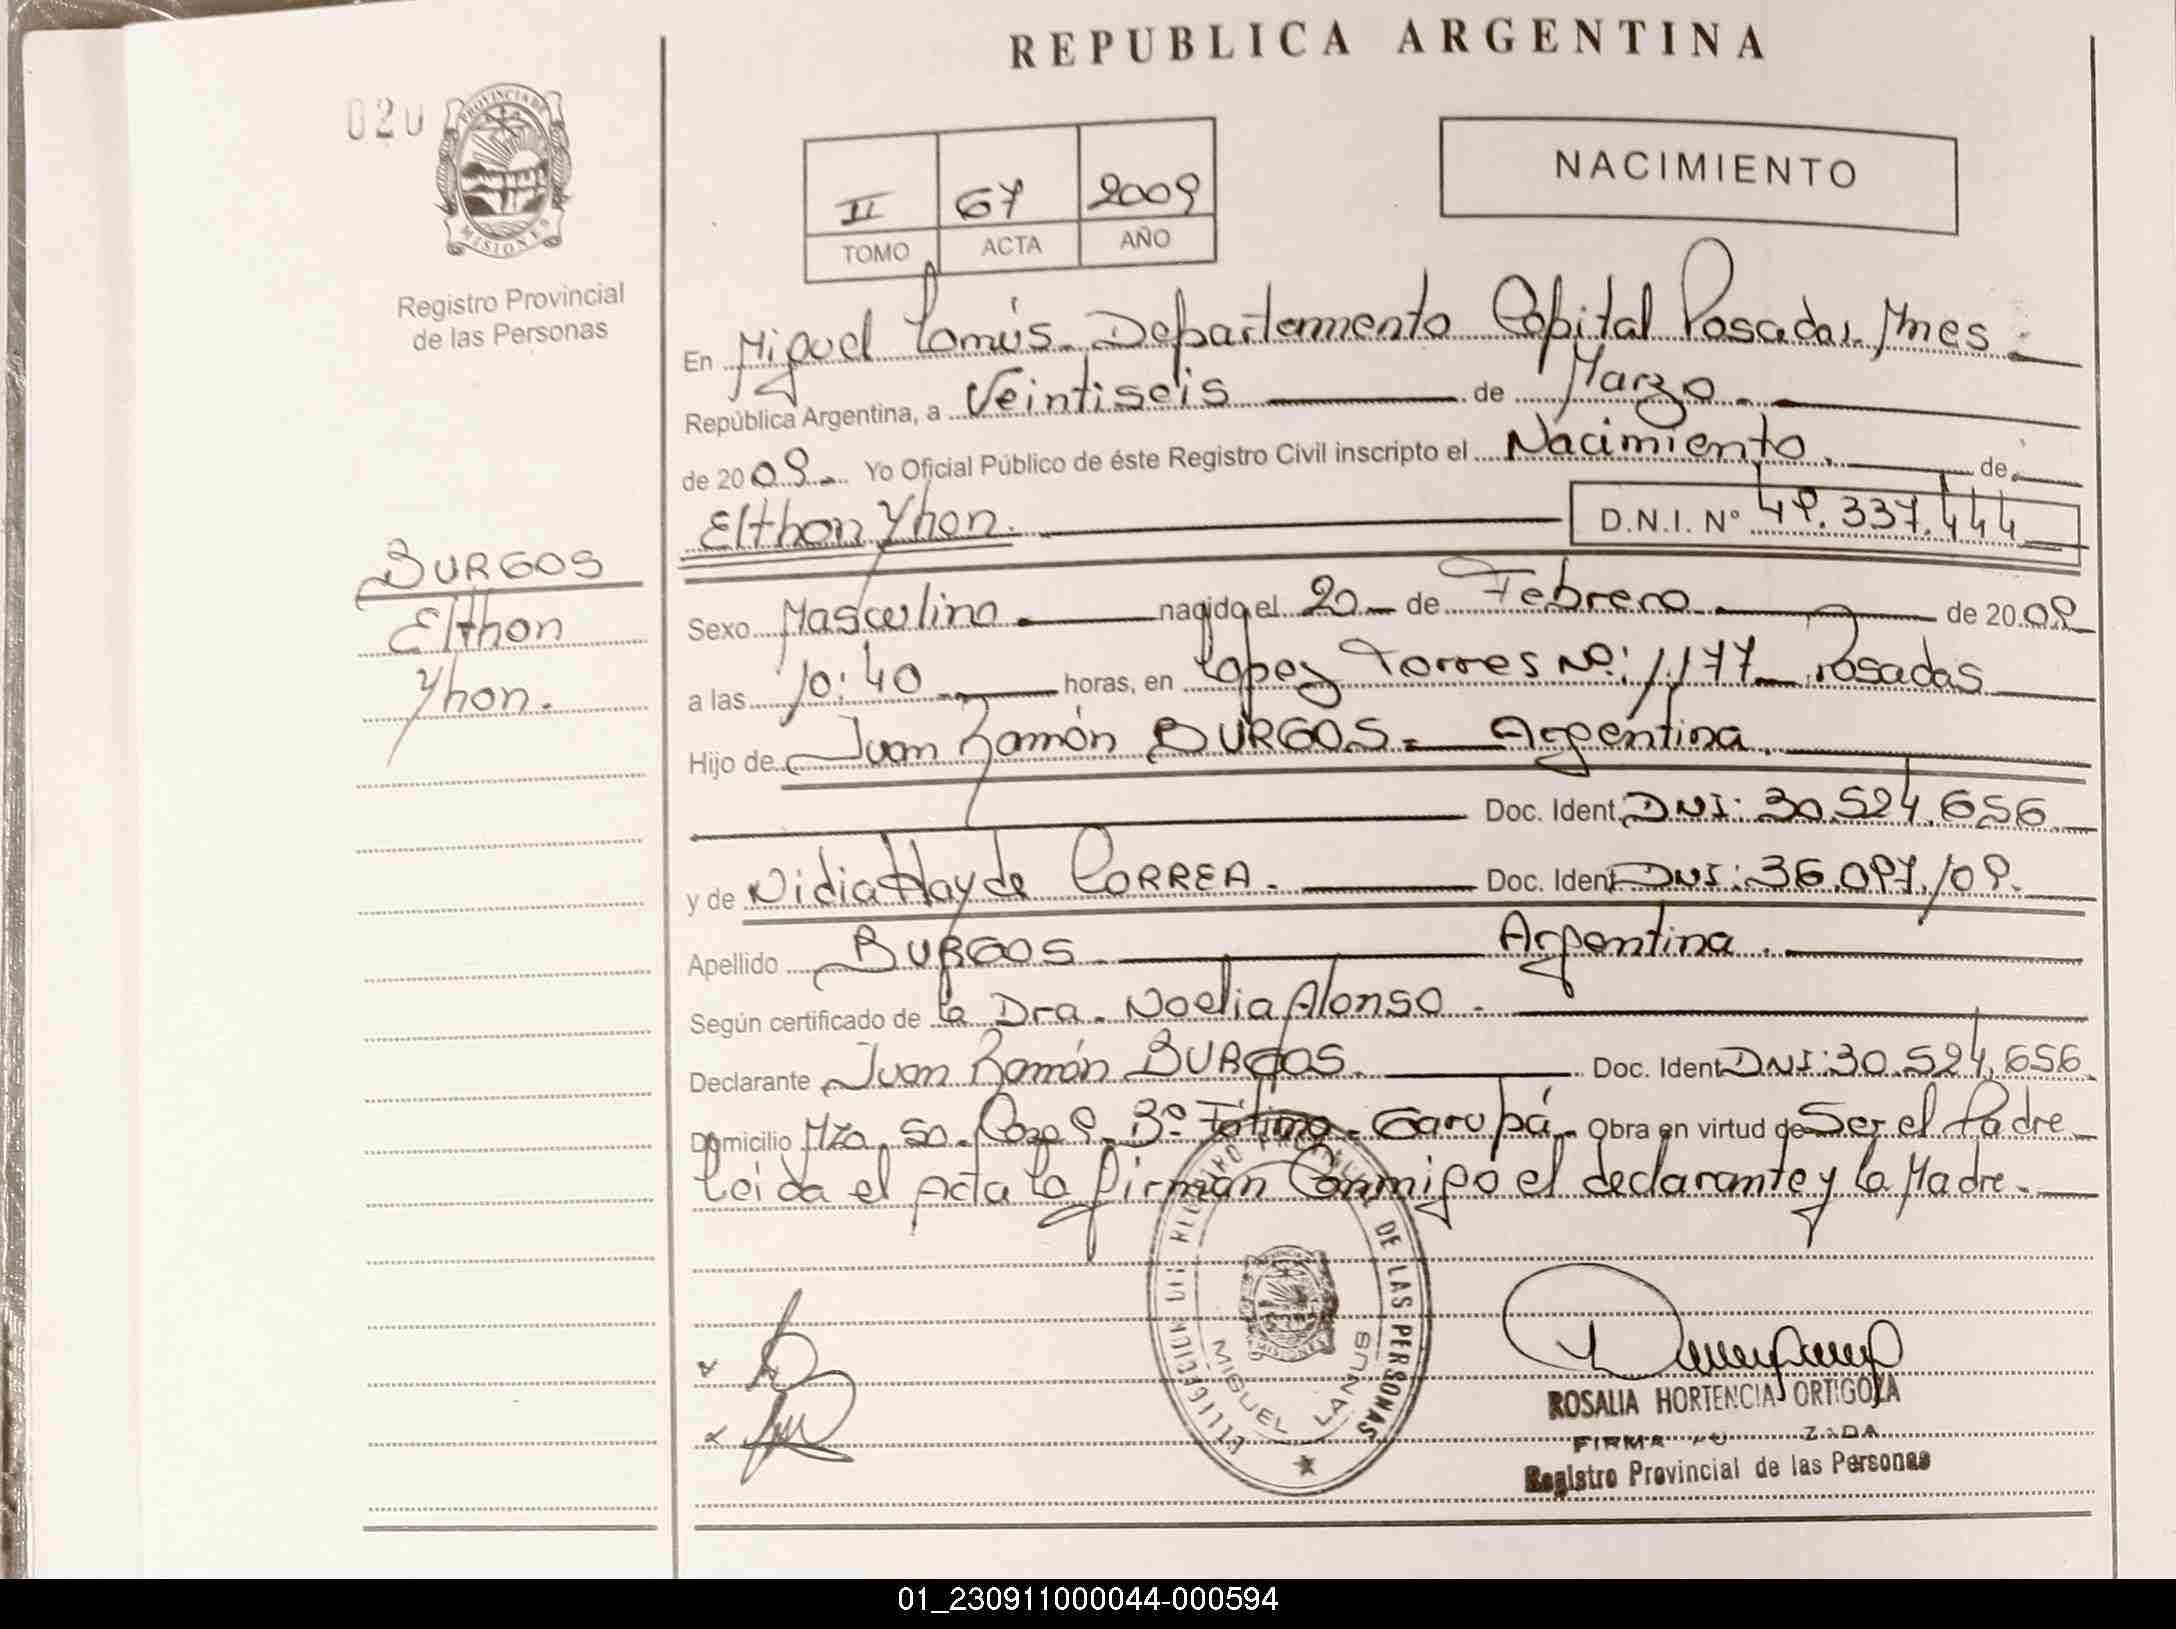 REPUBLICA ARGENTINA
020
PROVINCIA DE
MISIONES
Registro Provincial
de las Personas
II 67 2009
TOMO ACTA AÑO
NACIMIENTO
En Miguel Lanús. Departamento Capital Posadas. Mnes
República Argentina, a Veintiseis de Marzo.
de 2009. Yo Oficial Público de éste Registro Civil inscripto el Nacimiento. de
Elthon Yhon. D.N.I. Nº 49.337.444
BURGOS
Elthon
Yhon.
Sexo Masculino nacido el 20 de Febrero de 2009
a las 10:40 horas, en Lopez Torres Nº: 1177 Posadas
Hijo de Juan Ramón BURGOS. Argentina.
Doc. Ident. DNI: 30.524.656.
y de Nidia Hayde CORREA. Doc. Ident DNI: 36.097.109.
Apellido BURGOS Argentina.
Según certificado de la Dra. Noelia Alonso.
Declarante Juan Ramón BURGOS. Doc. Ident DNI: 30.524.656.
Domicilio Mza. 50. Casa 9. Bº Fátima. Garupá. Obra en virtud de Ser el Padre
Leida el Acta la firman Conmigo el declarante y la Madre.
REGISTRO PROVINCIAL DE LAS PERSONAS
MIGUEL LANUS
ROSALIA HORTENCIA ORTIGOZA
FIRMA
Registro Provincial de las Personas
01_230911000044-000594